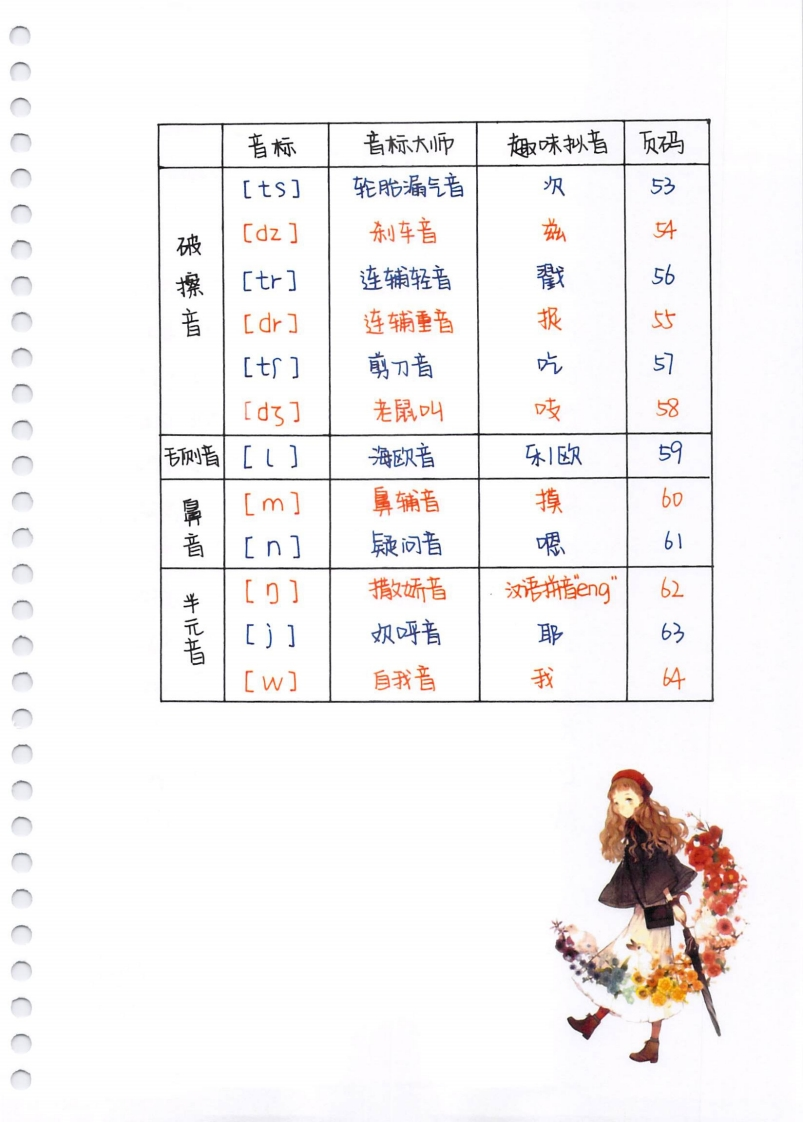 音标 音标大师 趣味拟音 页码
破擦音
[ts] 轮胎漏气音 次 53
[dz] 刹车音 兹 54
[tr] 连辅轻音 戳 56
[dr] 连辅重音 捉 55
[tʃ] 剪刀音 吃 57
[dʒ] 老鼠叫 吱 58
舌侧音 [l] 海欧音 乐|欧 59
鼻音
[m] 鼻辅音 摸 60
[n] 疑问音 嗯 61
半元音
[ŋ] 撒娇音 汉语拼音"eng" 62
[j] 欢呼音 耶 63
[w] 自我音 我 64